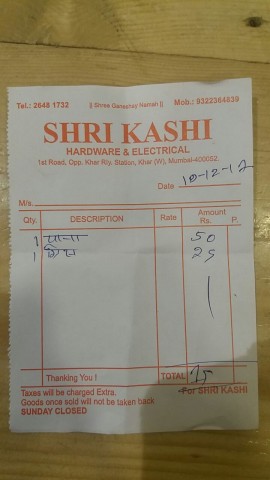 Tel.: 2648 1732 || Shree Ganeshay Namah || Mob.: 9322364839
SHRI KASHI
HARDWARE & ELECTRICAL
1st Road, Opp. Khar Rly. Station, Khar (W), Mumbai-400052.
Date 10-12-12
M/s.
Qty. DESCRIPTION Rate Amount Rs. P.
1 पाना 50
1 25
Thanking You ! TOTAL 75
Taxes will be charged Extra. For SHRI KASHI
Goods once sold will not be taken back
SUNDAY CLOSED